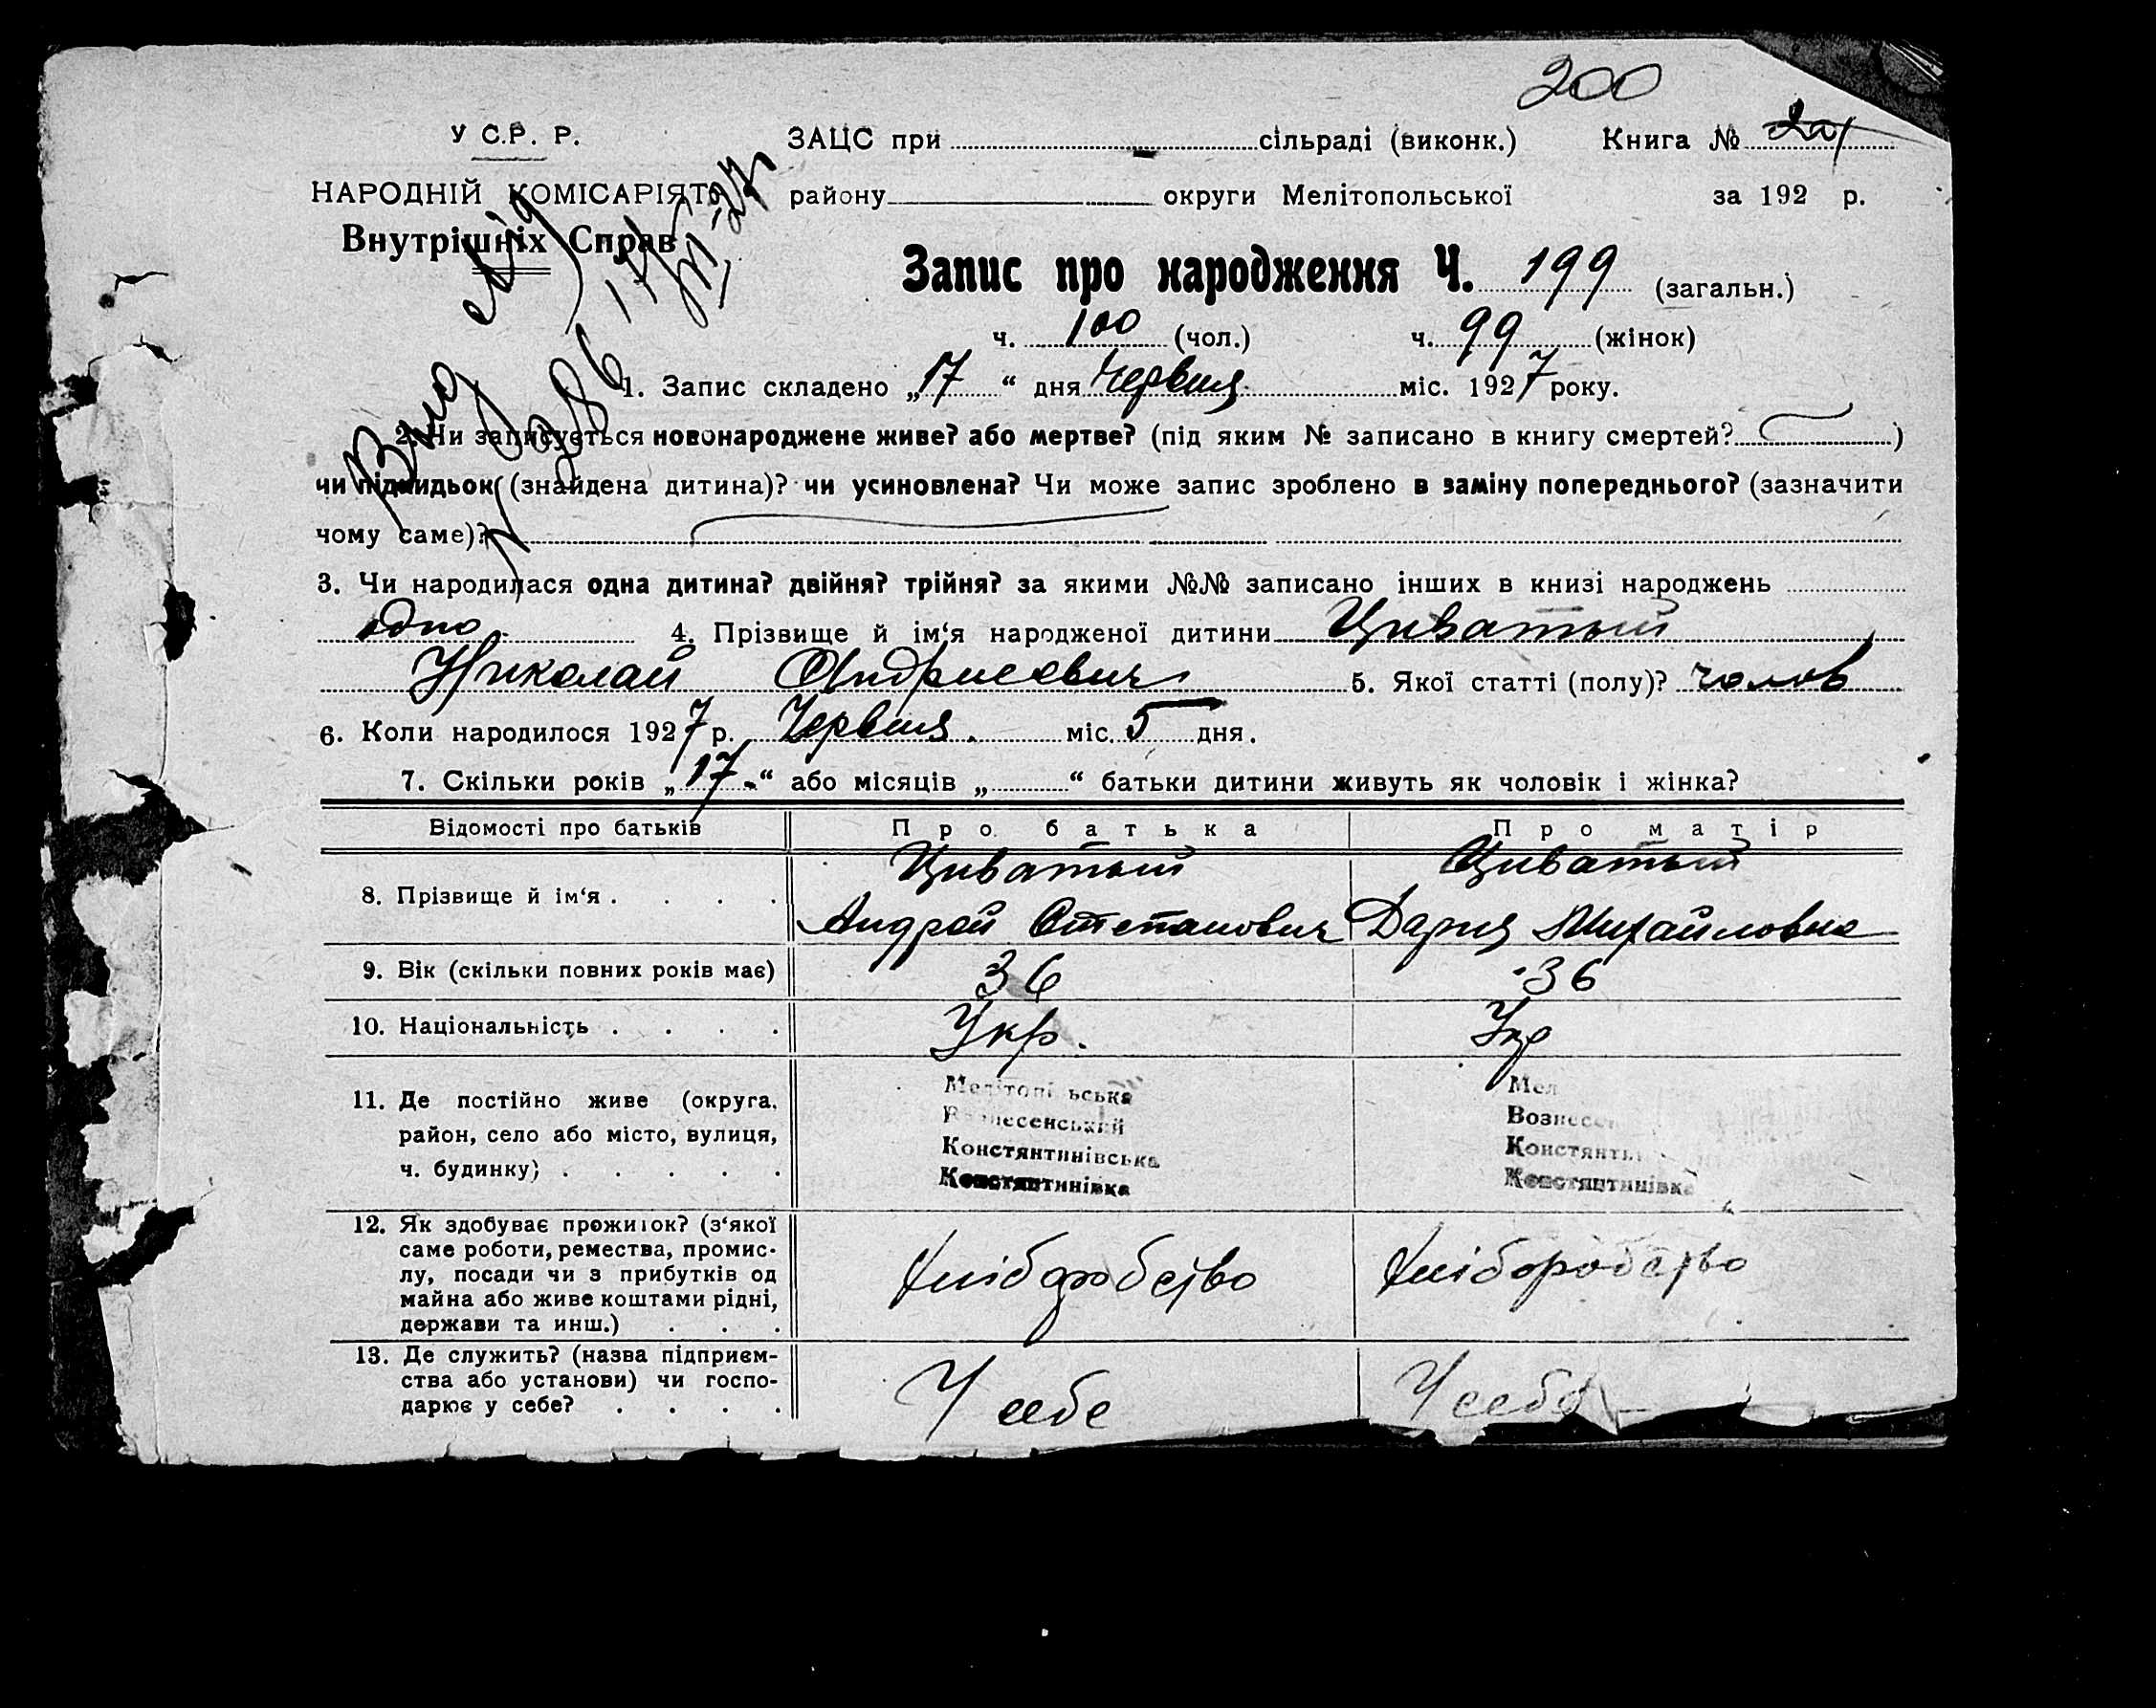 200
У С.Р. Р. ЗАЦС при сільраді (виконк.) Книга №
НАРОДНІЙ КОМІСАРІЯТ району округи Мелітопольської за 192 р.
Внутрішніх Справ
Запис про народження Ч. 199 (загальн.)
ч. 100 (чол.) ч. 99 (жінок)
1. Запис складено „17“ дня Червня міс. 1927 року.
2. Чи записується новонароджене живе? або мертве? (під яким № записано в книгу смертей? )
чи підкидьок (знайдена дитина)? чи усиновлена? Чи може запис зроблено в заміну попереднього? (зазначити
чому саме)?
3. Чи народилася одна дитина? двійня? трійня? за якими №№ записано інших в книзі народжень
одно. 4. Прізвище й ім‘я народженої дитини Циватый
Николай Андриевич 5. Якої статті (полу)? чолов
6. Коли народилося 1927 р. Червня. міс. 5 дня.
7. Скільки років „17“ або місяців „ “ батьки дитини живуть як чоловік і жінка?
Відомості про батьків Про батька Про матір
8. Прізвище й ім‘я . . . . Циватый Циватый
Андрей Степанович Дария Михайловна
9. Вік (скільки повних років має) 36 36
10. Національність . . . . Укр. Укр
11. Де постійно живе (округа, район, село або місто, вулиця, ч. будинку) . . . . .
Мелітопільська
Вознесенський
Констянтинівська
Констянтинівка
Мел
Вознесен
Констянти
Констянтинівка
12. Як здобуває прожиток? (з‘якої
саме роботи, ремества, промис-
лу, посади чи з прибутків од
майна або живе коштами рідні,
держави та инш.) . . .
Хліборобство Хліборобство
13. Де служить? (назва підприєм-
ства або установи) чи госпо-
дарює у себе? . . . .
У себе У себе